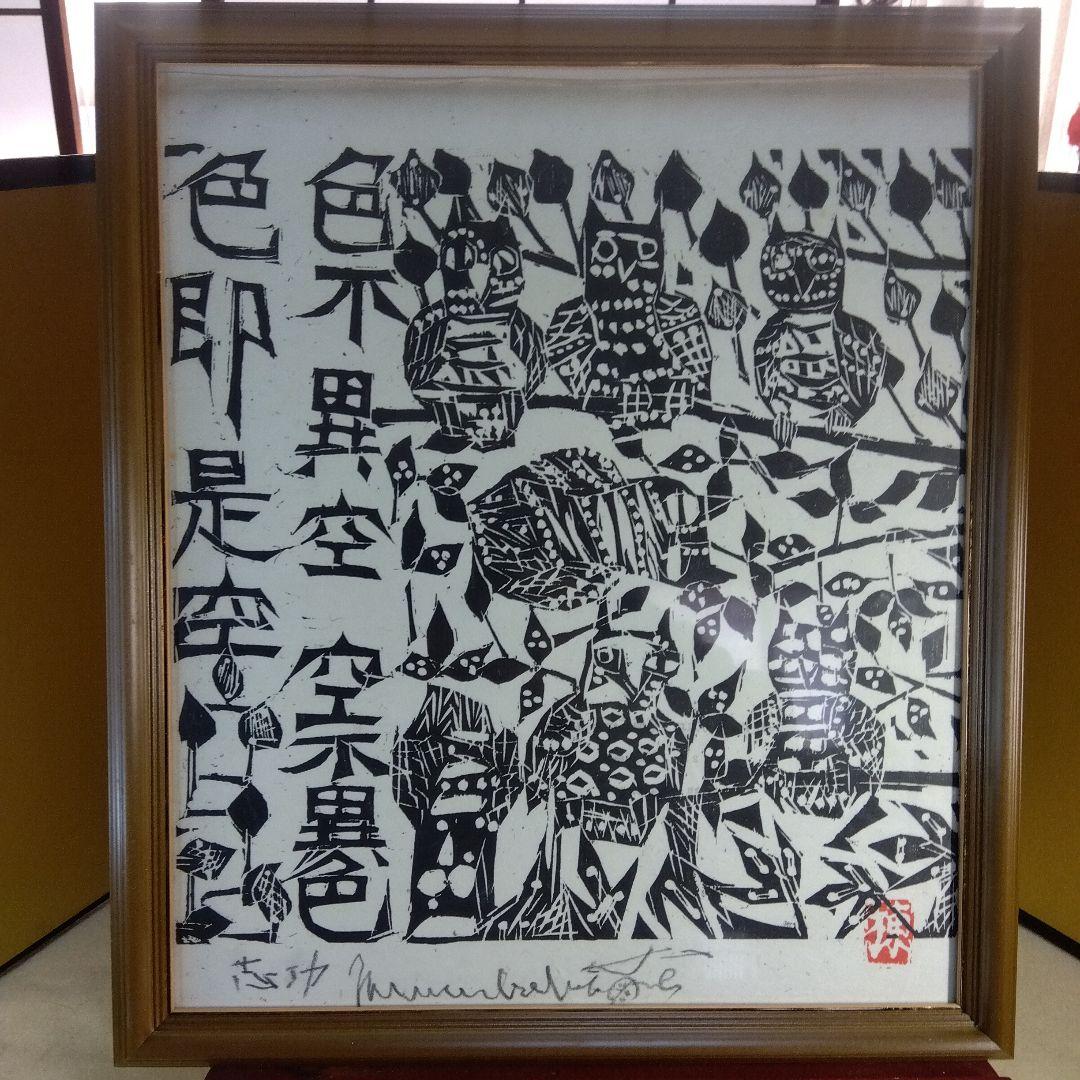 色不異空空不異色
色即是空
志功